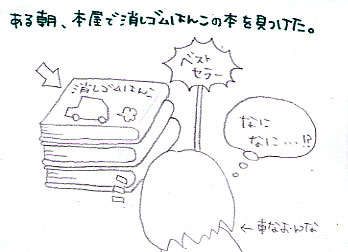 ある朝、本屋で消しゴムはんこの本を見つけた。
ベスト
セラー
消しゴムはんこ
なに
なに…!?